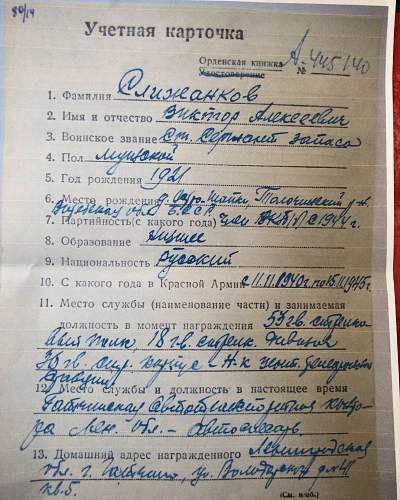 80/14
Учетная карточка
Орденская книжка А-445140
Удостоверение №
1. Фамилия Слижанков
2. Имя и отчество Виктор Алексеевич
3. Воинское звание Ст. Сержант запаса
4. Пол мужской
5. Год рождения 1921
6. Место рождения Толочинский р-н
Б.С.С.Р.
7. Партийность (с какого года) член ВКП(б) с 1944 г.
8. Образование низшее
9. Национальность Русский
10. С какого года в Красной Армии с 11.11.1940г. по 15.11.1945г.
11. Место службы (наименование части) и занимаемая
должность в момент награждения 53 гв. стрелко-
вый полк, 18 гв. стрелк. дивизия
корпус - Н-к
12. Место службы и должность в настоящее время
Гатчинская Автотранспортная конто-
ра Лен. обл. - Автослесарь
13. Домашний адрес награжденного Ленинградская
обл. г. Гатчина, ул. Володарского д.
кв. 5.
(См. н/об.)